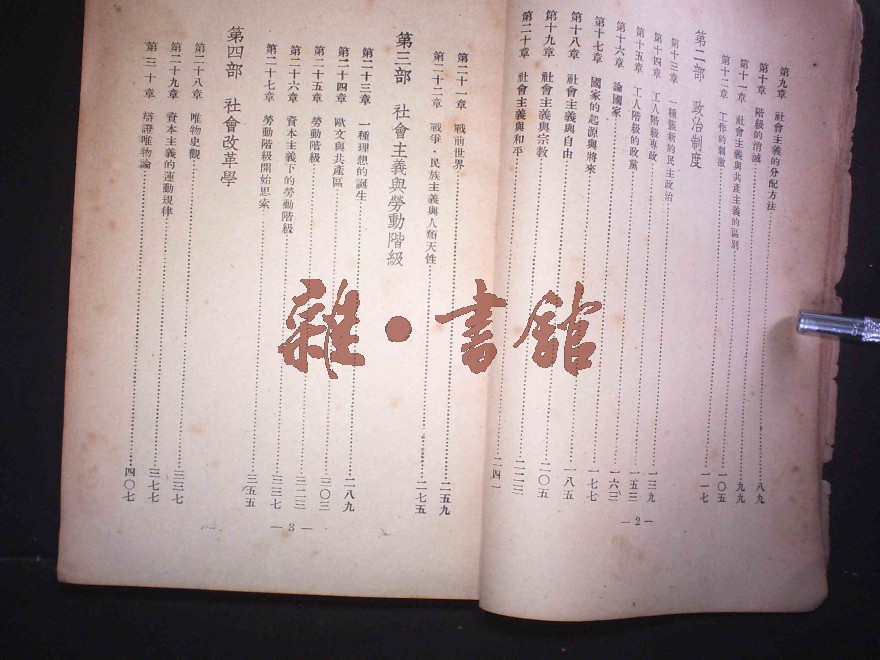 第九章 社會主義的分配方法……八九
第十章 階級的消滅……九九
第十一章 社會主義與共產主義的區別……一〇五
第十二章 工作的刺激……一一七
第二部 政治制度
第十三章 一種嶄新的民主政治……一三九
第十四章 工人階級專政……一五三
第十五章 工人階級的政黨……一六三
第十六章 論國家……一七七
第十七章 國家的起源與將來……一八五
第十八章 社會主義與自由……二〇五
第十九章 社會主義與宗教……二二三
第二十章 社會主義與和平……二四一
—2—
第二十一章 戰前世界……二五九
第二十二章 戰爭・民族主義與人類天性……二七五
第三部 社會主義與勞動階級
第二十三章 一種理想的誕生……二八九
第二十四章 歐文與共產區……三〇三
第二十五章 勞動階級……三二三
第二十六章 資本主義下的勞動階級……三三七
第二十七章 勞動階級開始思索……三五五
第四部 社會改革學
第二十八章 唯物史觀……
第二十九章 資本主義的運動規律……三七七
第三十章 辯證唯物論……四〇七
—3—
雜・書館